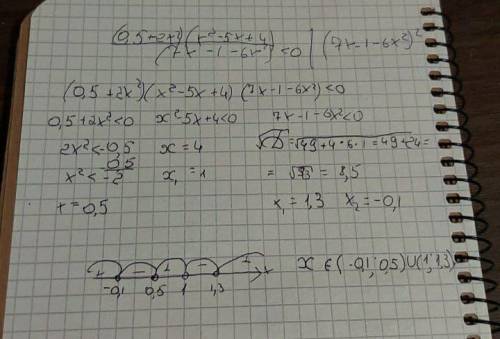 (0,5+2x²)(x²-5x+4)
(7x-1-6x²) <0 | (7x-1-6x²)²
(0,5+2x²)(x²-5x+4)(7x-1-6x²)<0
0,5+2x²<0 x²-5x+4<0 7x-1-6x²<0
2x²<-0,5 x=4 √D=√49+4*6*1=49+24=
x²<-0,5/2 x₁=1 =√73=8,5
x=0,5 x₁=1,3 x₂=-0,1
+ - + - + x x∈(-0,1;0,5)∪(1;1,3)
-0,1 0,5 1 1,3